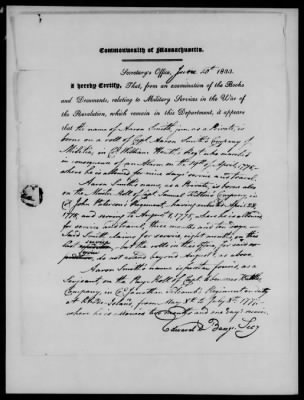 Commonwealth of Massachusetts.
Secretary's Office, June 20th 1833.
I hereby Certify, That, from an examination of the Books
and Documents, relating to Military Services in the War of
the Revolution, which remain in this Department, it appears
that the name of Aaron Smith, jun. as a Private, is
borne on a roll of Capt. Aaron Smith's Company of
Militia, in Col. William regt. which marched
in consequence of an Alarm on the 19th of April, 1775,
where he is allowed for nine days' service and travel.
Aaron Smith's name, as a Private, is borne also
on the Muster Roll of Capt. Company, in
Col. John Paterson's Regiment, having enlisted April
1775, and serving to August 1, 1775, where he is allowed
for service and travel, three months and ten days.
Said Smith claims for service, eight months, on this
but the rolls in this office for said
do not extend beyond August, as above.
Aaron Smith's name is further found, as a
Sergeant, on the Pay Roll of Capt. Ebenezer
Company, in Col. Jonathan Regiment on duty
at Rhode Island, from May 8th to July 8th, 177
where he is two months and one day's service.
Edward D. Bangs, Secy